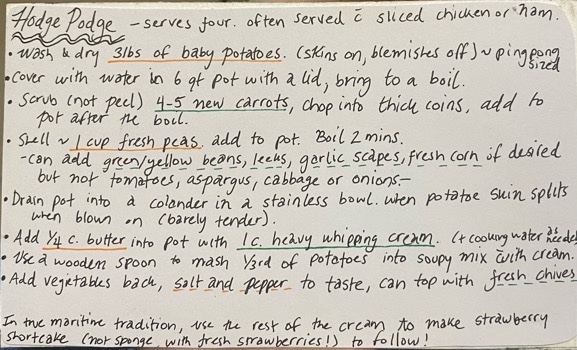 Hodge Podge - serves four. often served c̄ sliced chicken or ham.
• Wash & dry 3lbs of baby potatoes. (skins on, blemishes off) ~ ping pong sized
• Cover with water in 6 qt pot with a lid, bring to a boil.
• Scrub (not peel) 4-5 new carrots, chop into thick coins, add to
pot after the boil.
• Shell ~ 1 cup fresh peas, add to pot. Boil 2 mins.
- can add green/yellow beans, leeks, garlic scapes, fresh corn if desired
but not tomatoes, aspargus, cabbage or onions.-
• Drain pot into a colander in a stainless bowl. when potatoe skin splits
when blown on (barely tender).
• Add 1/4 c. butter into pot with 1 c. heavy whipping cream. (+ cooking water as needed)
• Use a wooden spoon to mash 1/3rd of potatoes into soupy mix with cream.
• Add vegetables back, salt and pepper to taste, can top with fresh chives.
In true maritime tradition, use the rest of the cream to make strawberry
shortcake (not sponge, with fresh strawberries!) to follow!